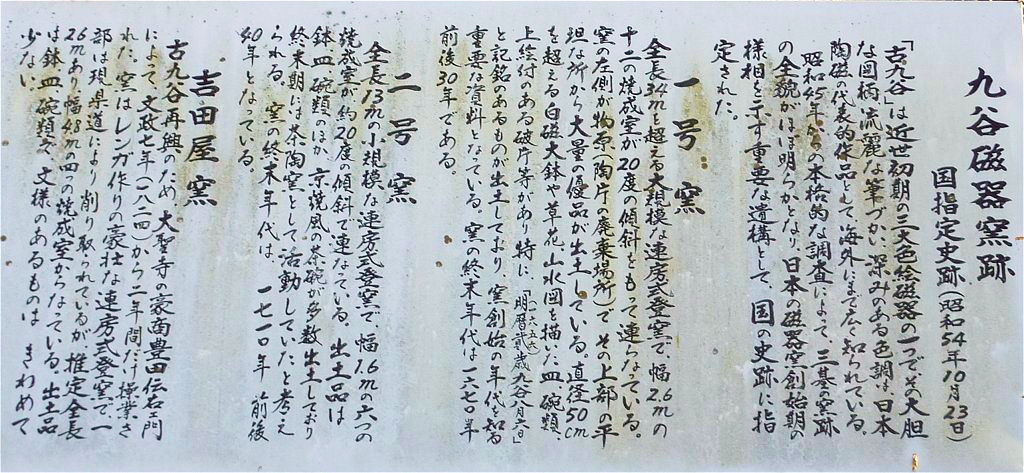 九谷磁器窯跡
国指定史跡(昭和54年10月23日)
「古九谷」は近世初期の三大色絵磁器の一つで、その大胆
な図柄、流麗な筆づかい、深みのある色調は、日本
陶磁の代表的作品として海外にまで広く知られている。
昭和45年からの本格的な調査によって、三基の窯跡
の全貌がほぼ明らかとなり、日本の磁器窯創始期の
様相を示す重要な遺構として、国の史跡に指
定された。
一号窯
全長34mを超える大規模な連房式登窯で、幅2.6mの
十二の焼成室が20度の傾斜をもって連らなっている。
窯の左側が物原(陶片の廃棄場所)で、その上部の平
坦な所から大量の優品が出土している。直径50cm
を超える白磁大鉢や草花、山水図を描いた皿、碗類、
上絵付のある破片等があり特に、「明暦貳歳九谷八月六日」
(一六五六)
と記銘のあるものが出土しており、窯創始の年代を知る
重要な資料となっている。窯の終末年代は一六七〇年
前後30年である。
二号窯
全長13mの小規模な連房式登窯で、幅1.6mの六つの
焼成室が約20度の傾斜で連なている。出土品は
鉢、皿、碗類のほか、京焼風の茶碗が多数出土しており
終末期には茶陶窯として活動していたと考え
られる。窯の終末年代は、一七一〇年前後
40年となっている。
吉田屋窯
古九谷再興のため、大聖寺の豪商豊田伝右ェ門
によって、文政七年(一八二四)から二年間だけ操業さ
れた。窯はレンガ作りの豪壮な連房式登窯で、一
部は現県道により削り取られているが、推定全長
26mあり、幅4.8mの四の焼成室からなっている。出土品
は鉢、皿、碗類で、文様のあるものは きわめて
少ない。